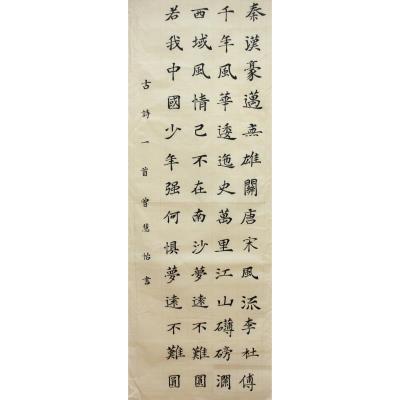 秦漢豪邁無雄關唐宋風流李杜傳
千年風華逶迤史萬里江山礴磅瀾
西域風情已不在南沙夢遠不難圓
若我中國少年强何懼夢遠不難圓
古詩一首曾慧怡書